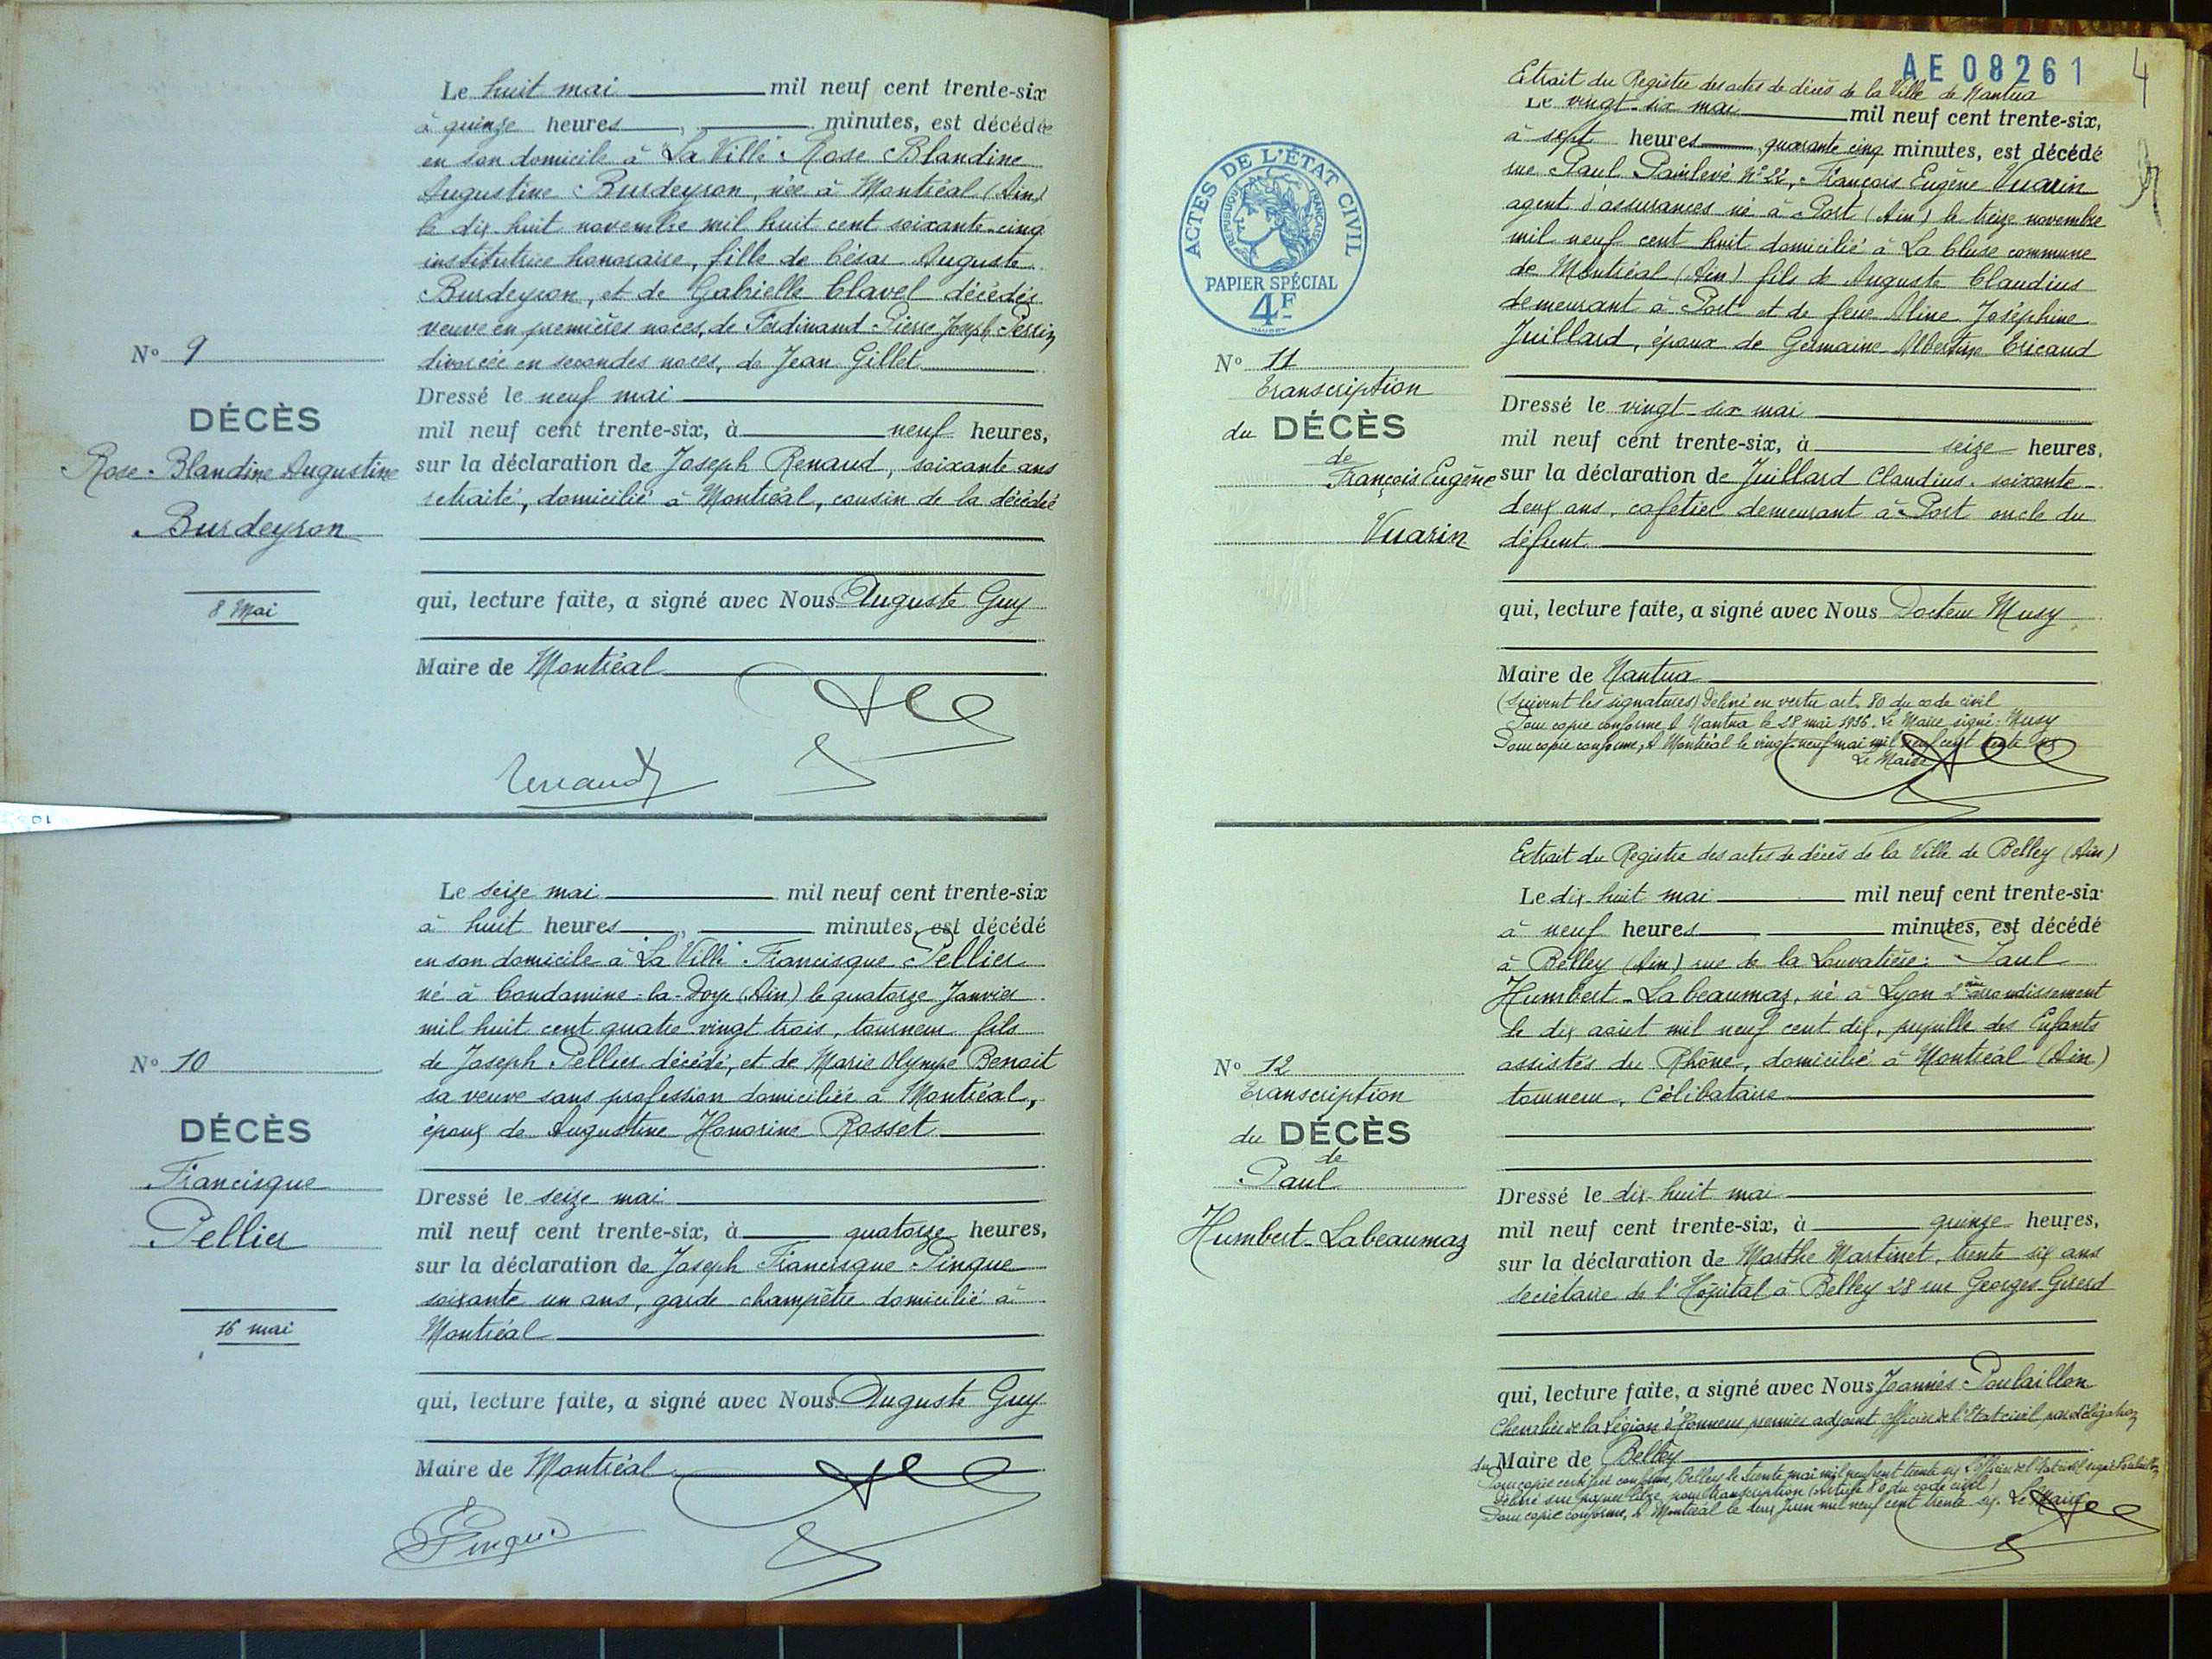 Le huit mai mil neuf cent trente-six
à quinze heures, minutes, est décédée
en son domicile à "La Ville" Rose Blandine
Augustine Burdeyron, née à Montréal (Ain)
le dix-huit novembre mil huit cent soixante-cinq
institutrice honoraire, fille de César Auguste
Burdeyron, et de Gabrielle Clavel décédés
veuve en premières noces, de Ferdinand Pierre Joseph Perrin
divorcée en secondes noces, de Jean Gillet
N° 9
DÉCÈS
Rose Blandine Augustine
Burdeyron
8 Mai
Dressé le neuf mai
mil neuf cent trente-six, à neuf heures,
sur la déclaration de Joseph Renaud, soixante ans
retraité, domicilié à Montréal, cousin de la décédée
qui, lecture faite, a signé avec Nous Auguste Guy
Maire de Montréal
Renaud
Le seize mai mil neuf cent trente-six
à huit heures, minutes, est décédé
en son domicile à "La Ville" Francisque Pellier
né à Condamine-la-Doye (Ain) le quatorze Janvier
mil huit cent quatre vingt trois, tourneur fils
de Joseph Pellier décédé, et de Marie Olympe Benoit
sa veuve sans profession domiciliée à Montréal,
époux de Augustine Honorine Rosset
N° 10
DÉCÈS
Francisque
Pellier
16 mai
Dressé le seize mai
mil neuf cent trente-six, à quatorze heures,
sur la déclaration de Joseph Francisque Pingue
soixante un ans, garde champêtre domicilié à
Montréal
qui, lecture faite, a signé avec Nous Auguste Guy
Maire de Montréal
Pingue
AE 08261
4
Extrait du Registre des actes de décès de la Ville de Nantua
Le vingt-six mai mil neuf cent trente-six,
à sept heures quarante cinq minutes, est décédé
rue Paul Painlevé N° 22, François Eugène Vuarin
agent d'assurances né à Port (Ain) le treize novembre
mil neuf cent huit domicilié à La Cluse commune
de Montréal (Ain) fils de Auguste Claudius
demeurant à Port et de feue Aline Joséphine
Juillard, époux de Germaine Albertine Ericaud
ACTES DE L'ÉTAT CIVIL
RÉPUBLIQUE FRANÇAISE
PAPIER SPÉCIAL
4F
N° 11
Transcription
du DÉCÈS
de
François Eugène
Vuarin
Dressé le vingt-six mai
mil neuf cent trente-six, à seize heures,
sur la déclaration de Juillard Claudius, soixante
deux ans, cafetier demeurant à Port oncle du
défunt
qui, lecture faite, a signé avec Nous Docteur Musy
Maire de Nantua
(suivent les signatures) Délivré en vertu art. 80 du code civil
Pour copie conforme A Nantua le 28 mai 1936. Le Maire signé: Musy
Pour copie conforme, A Montréal le vingt-neuf mai mil neuf cent trente six
Le Maire
Extrait du Registre des actes de décès de la Ville de Belley (Ain)
Le dix-huit mai mil neuf cent trente-six
à neuf heures, minutes, est décédé
à Belley (Ain) rue de la Louvatière: Paul
Humbert-Labeaumaz, né à Lyon 2ème arrondissement
le dix août mil neuf cent dix, pupille des Enfants
assistés du Rhône, domicilié à Montréal (Ain)
tourneur, célibataire
N° 12
Transcription
du DÉCÈS
de
Paul
Humbert-Labeaumaz
Dressé le dix-huit mai
mil neuf cent trente-six, à quinze heures,
sur la déclaration de Marthe Martinet, trente six ans
secrétaire de l'Hôpital à Belley 28 rue Georges Girerd
qui, lecture faite, a signé avec Nous Joannès Poulaillon
Chevalier de la Légion d'Honneur premier adjoint officier de l'Etat civil par délégation
du Maire de Belley
Pour copie certifiée conforme, Belley le trente mai mil neuf cent trente six L'Officier de l'Etat civil signé Poulaillon
Délivré sur papier libre pour transcription (Article 80 du code civil)
Pour copie conforme, A Montréal le deux Juin mil neuf cent trente six. Le Maire